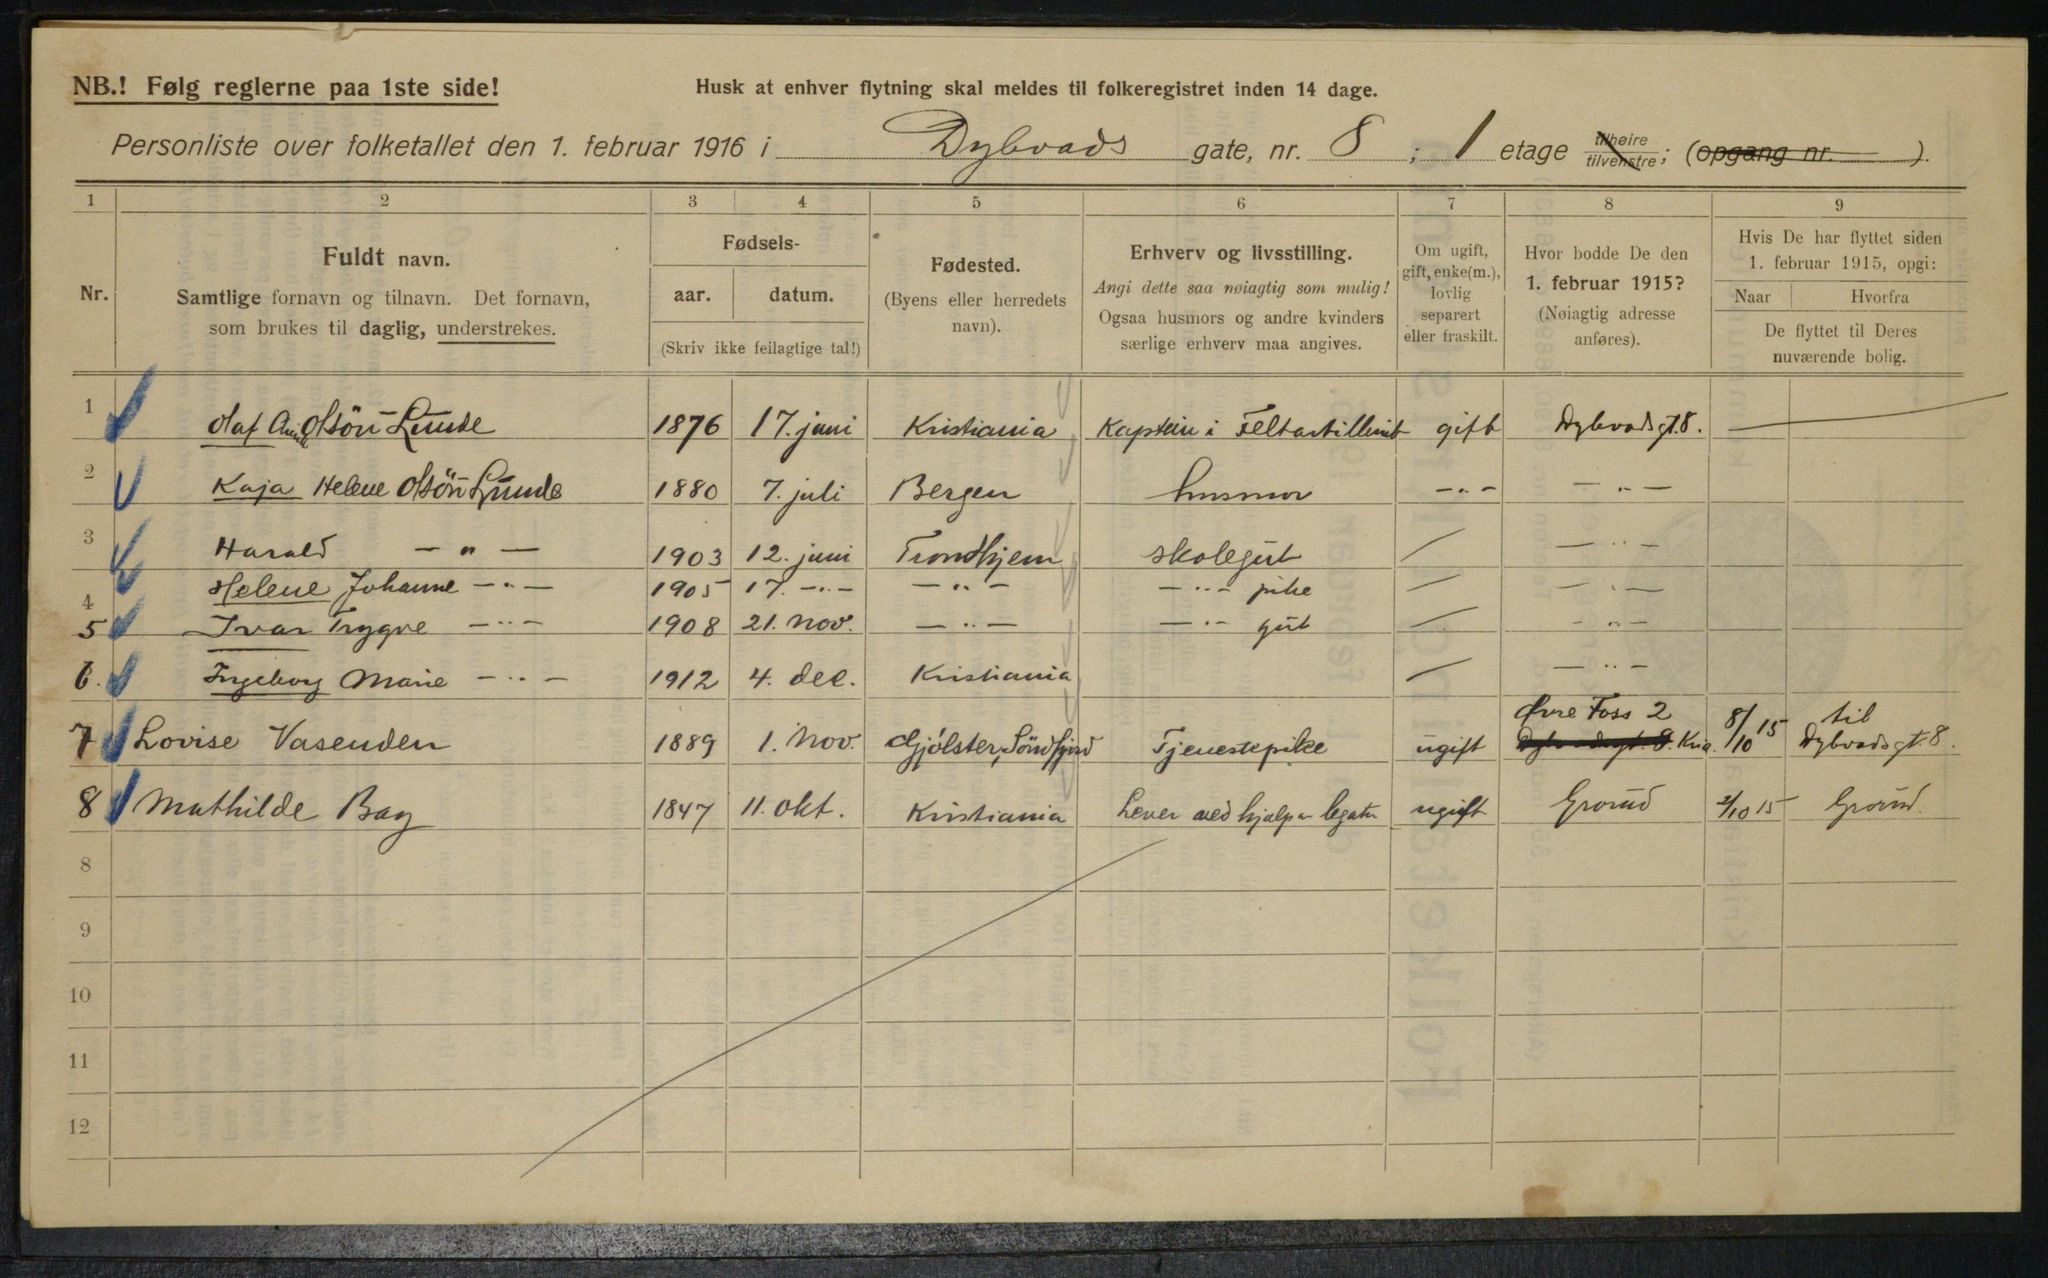 NB.! Følg reglerne paa 1ste side!
Husk at enhver flytning skal meldes til folkeregistret inden 14 dage.
Personliste over folketallet den 1. februar 1916 i Dybvads gate, nr. 8 ; 1 etage tilhøire / tilvenstre ; (opgang nr. ).
1 2 3 4 5 6 7 8 9
Nr.
Fuldt navn.
Samtlige fornavn og tilnavn. Det fornavn,
som brukes til daglig, understrekes.
Fødsels-
aar. datum.
(Skriv ikke feilagtige tal!)
Fødested.
(Byens eller herredets
navn).
Erhverv og livsstilling.
Angi dette saa nøiagtig som mulig!
Ogsaa husmors og andre kvinders
særlige erhverv maa angives.
Om ugift,
gift, enke(m.),
lovlig
separert
eller fraskilt.
Hvor bodde De den
1. februar 1915?
(Nøiagtig adresse
anføres).
Hvis De har flyttet siden
1. februar 1915, opgi:
Naar Hvorfra
De flyttet til Deres
nuværende bolig.
1 Olaf Olsön Lunde 1876 17. juni Kristiania Kaptein i gift Dybvadsgt. 8. —
2 Kaja Helene Olsön Lunde 1880 7. juli Bergen husmor —"— —"—
3 Harald —"— 1903 12. juni Trondhjem skolegut / —"—
4 Helene Johanne —"— 1905 17. —"— —"— —"— pike / —"—
5 Ivar Trygve —"— 1908 21. Nov. —"— —"— gut / —"—
6. Ingeborg Marie —"— 1912 4. dec. Kristiania / —"—
7 Lovise Vasenden 1889 1. Nov. Gjölster, Söndfjord Tjenestepike ugift Øvre Foss 2 Dybvadsgt. 8. Kria. 8/10 15 til Dybvadsgt. 8.
8 Mathilde Bay 1847 11. okt. Kristiania Lever ved hjælp av legater ugift Grorud 2/10 15 Grorud.
8
9
10
11
12